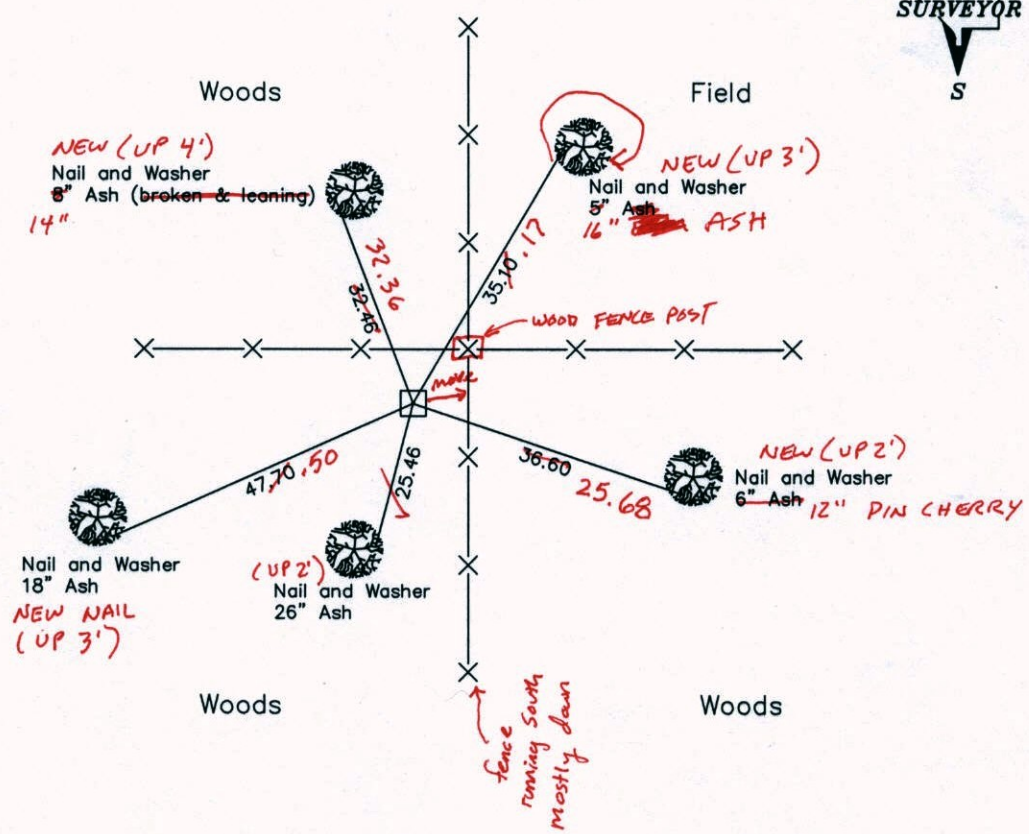 SURVEYOR
S
Woods
Field
NEW (UP 4')
Nail and Washer
8" Ash (broken & leaning)
14"
NEW (UP 3')
Nail and Washer
5" Ash
16" ASH
32.36
32.46
35.10 .17
WOOD FENCE POST
MOVE
47.70 .50
25.46
36.60
25.68
NEW (UP 2')
Nail and Washer
6" Ash 12" PIN CHERRY
Nail and Washer
18" Ash
NEW NAIL
(UP 3')
(UP 2')
Nail and Washer
26" Ash
Woods
Woods
fence
running south
mostly down